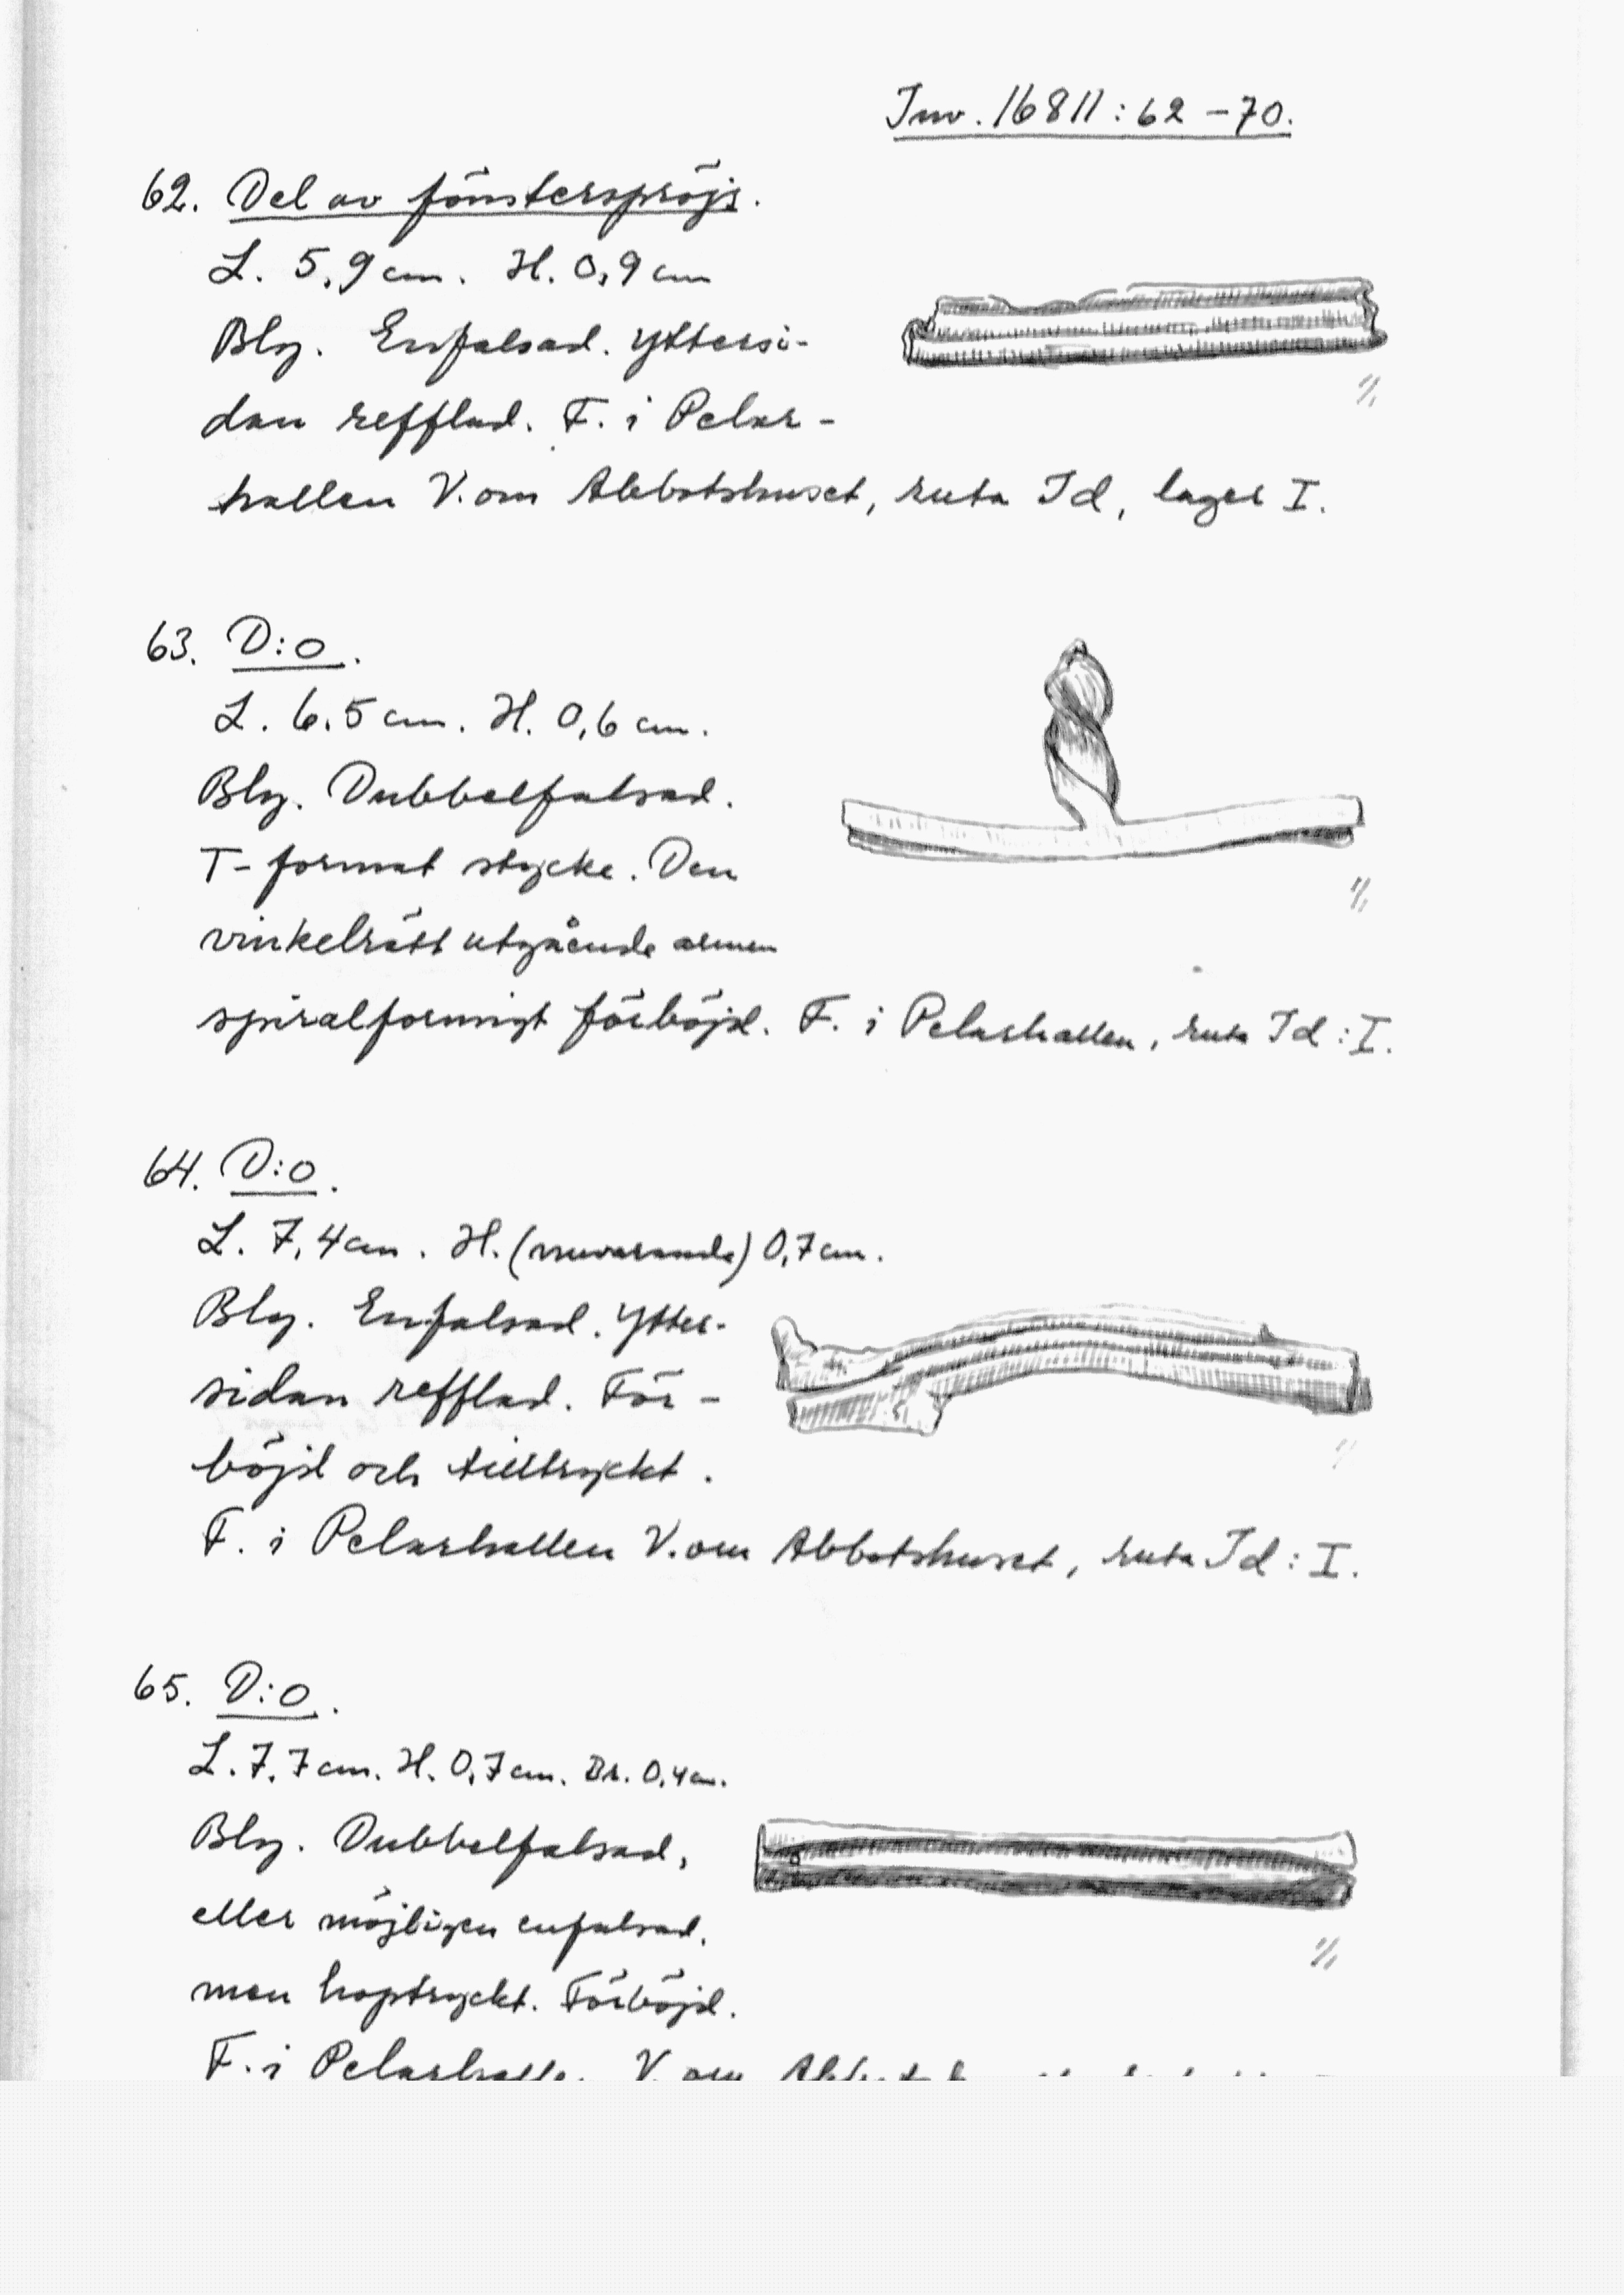 Inv. 16811:62–70.
62. Del av fönsterspröjs.
L. 5,9 cm. H. 0,9 cm
Bly. Enfalsad. Yttersi-
dan refflad. F. i Pelar-
hallen V. om Abbotshuset, ruta Id, lager I.
1/1
63. D:o.
L. 6,5 cm. H. 0,6 cm.
Bly. Dubbelfalsad.
T-format stycke. Den
vinkelrätt utgående armen
spiralformigt förböjd. F. i Pelarhallen, ruta Id:I.
1/1
64. D:o.
L. 7,4 cm. H. (nuvarande) 0,7 cm.
Bly. Enfalsad. Ytter-
sidan refflad. För-
böjd och tilltryckt.
F. i Pelarhallen V. om Abbotshuset, ruta Id:I.
65. D:o.
L. 7,7 cm. H. 0,7 cm. Br. 0,4 cm.
Bly. Dubbelfalsad,
eller möjligen enfalsad,
men hoptryckt. Förböjd.
1/1
F. i Pelarhallen V. om